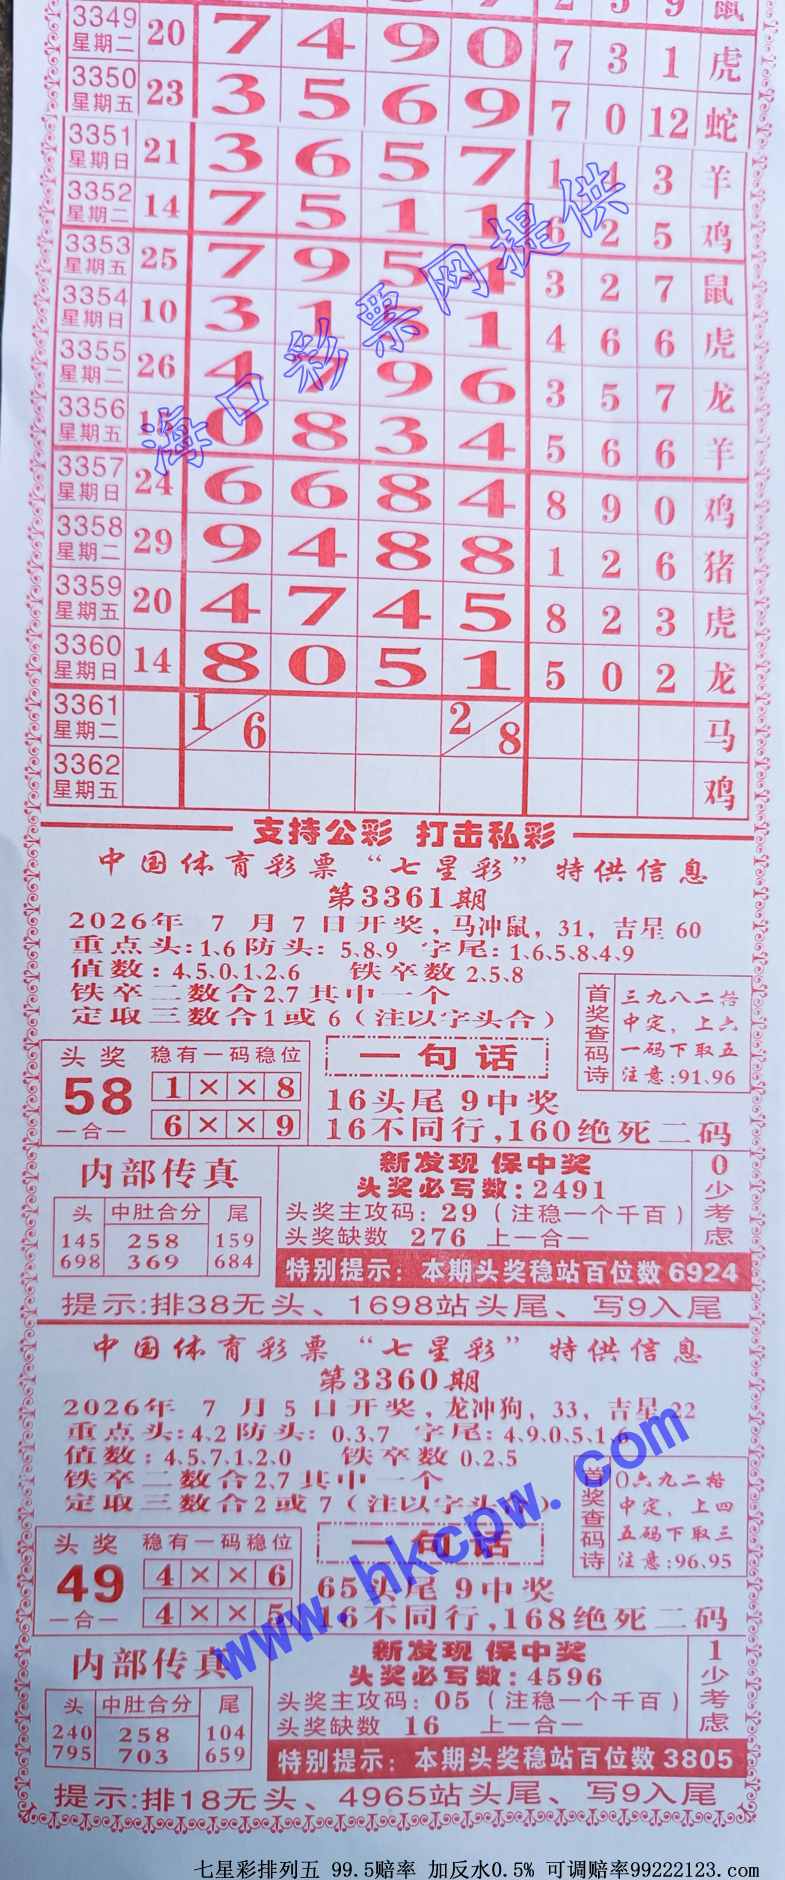 3349 星期二 20 7 4 9 0 7 3 1 虎
3350 星期五 23 3 5 6 9 7 0 12 蛇
3351 星期日 21 3 6 5 7 1 4 3 羊
3352 星期二 14 7 5 1 1 6 2 5 鸡
3353 星期五 25 7 9 5 4 3 2 7 鼠
3354 星期日 10 3 1 5 1 4 6 6 虎
3355 星期二 26 4 7 9 6 3 5 7 龙
3356 星期五 15 0 8 3 4 5 6 6 羊
3357 星期日 24 6 6 8 4 8 9 0 鸡
3358 星期二 29 9 4 8 8 1 2 6 猪
3359 星期五 20 4 7 4 5 8 2 3 虎
3360 星期日 14 8 0 5 1 5 0 2 龙
3361 星期二 1/6 2/8 马
3362 星期五 鸡
海口彩票网提供
支持公彩 打击私彩
中国体育彩票“七星彩”特供信息
第3361期
2026年 7 月 7 日开奖，马冲鼠，31，吉星 60
重点头:1、6 防头: 5、8、9 字尾: 1、6、5、8、4、9
值数: 4、5、0、1、2、6 铁卒数 2、5、8
铁卒二数合2、7其中一个
定取三数合1或 6 (注以字头合)
首奖查码诗
三九八二搭
中定，上六
一码下取五
注意:91、96
头奖 稳有一码稳位
58
一合一
1 × × 8
6 × × 9
一句话
16头尾 9中奖
16不同行,160绝死二码
内部传真
头 中肚合分 尾
145 258 159
698 369 684
新发现 保中奖
头奖必写数: 2491
头奖主攻码: 29 (注稳一个千百)
头奖缺数 276 上一合一
0少考虑
特别提示: 本期头奖稳站百位数 6924
提示:排38无头、1698站头尾、写9入尾
中国体育彩票“七星彩”特供信息
第3360期
2026年 7 月 5 日开奖，龙冲狗，33，吉星 22
重点头:4、2 防头: 0、3、7 字尾: 4、9、0、5、1、6
值数: 4、5、7、1、2、0 铁卒数 0、2、5
铁卒二数合2、7其中一个
定取三数合2或 7 (注以字头合)
首奖查码诗
0六九二搭
中定，上四
五码下取三
注意:96、95
头奖 稳有一码稳位
49
一合一
4 × × 6
4 × × 5
一句话
65头尾 9中奖
16不同行,168绝死二码
内部传真
头 中肚合分 尾
240 258 104
795 703 659
新发现 保中奖
头奖必写数: 4596
头奖主攻码: 05 (注稳一个千百)
头奖缺数 16 上一合一
1少考虑
特别提示: 本期头奖稳站百位数 3805
提示:排18无头、4965站头尾、写9入尾
www.hkcpw.com
七星彩排列五 99.5赔率 加反水0.5% 可调赔率99222123.com